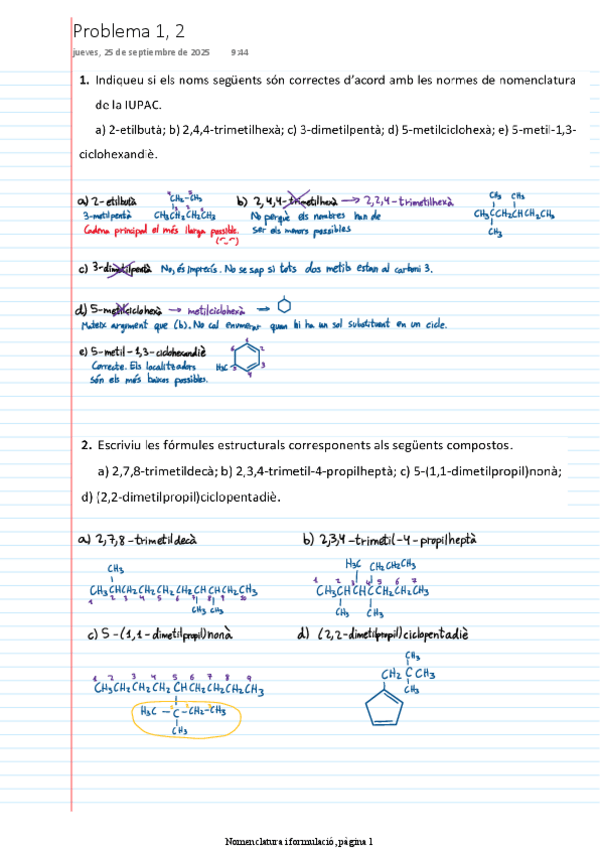 Problema 1, 2
jueves, 25 de septiembre de 2025 9:44
1. Indiqueu si els noms següents són correctes d'acord amb les normes de nomenclatura
de la IUPAC.
a) 2-etilbutà; b) 2,4,4-trimetilhexà; c) 3-dimetilpentà; d) 5-metilciclohexà; e) 5-metil-1,3-
ciclohexandiè.
a) 2-etilbutà
3-metilpentà
Cadena principal el més llarga possible.
CH2-CH3
CH3CHCH2CH3
b) 2,4,4-trimetilhexà → 2,2,4-trimetilhexà
No perquè els nombres han de
ser els menors possibles
CH3 CH3
CH3CCH2CHCH2CH3
CH3
c) 3-dimetilpentà No, és imprecís. No se sap si tots dos metils estan al carboni 3.
d) 5-metilciclohexà → metilciclohexà →
Mateix argument que (b). No cal enumerar quan hi ha un sol substituent en un cicle.
e) 5-metil-1,3-ciclohexandiè
Correcte. Els localitzadors
són els més baixos possibles.
H3C
2. Escriviu les fórmules estructurals corresponents als següents compostos.
a) 2,7,8-trimetildecà; b) 2,3,4-trimetil-4-propilheptà; c) 5-(1,1-dimetilpropil)nonà;
d) (2,2-dimetilpropil)ciclopentadiè.
a) 2,7,8-trimetildecà
CH3
CH3CHCH2CH2CH2CH2CHCHCH2CH3
1 2 3 4 5 6 7 8 9 10
CH3 CH3
b) 2,3,4-trimetil-4-propilheptà
H3C CH2CH2CH3
1 2 3 4 5 6 7
CH3CHCHCCH2CH2CH3
CH3 CH3
c) 5-(1,1-dimetilpropil)nonà
1 2 3 4 5 6 7 8 9
CH3CH2CH2CH2CHCH2CH2CH2CH3
H3C-C-CH2-CH3
CH3
d) (2,2-dimetilpropil)ciclopentadiè
CH3
CH2CCH3
CH3
Nomenclatura i formulació, página 1